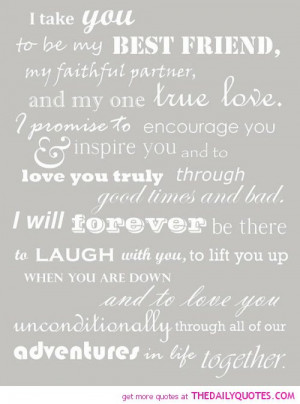 I take you
to be my BEST FRIEND,
my faithful partner,
and my one true love.
I promise to encourage you
& inspire you and to
love you truly through
good times and bad.
I will forever be there
to LAUGH with you, to lift you up
WHEN YOU ARE DOWN
and to love you
unconditionally through all of our
adventures in life together.
get more quotes at THEDAILYQUOTES.COM